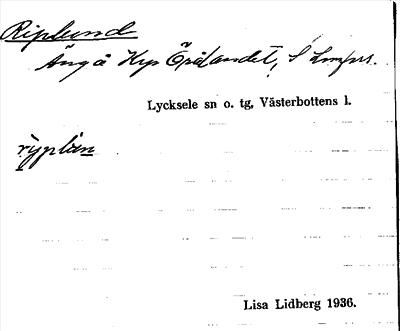 Riplund
Ångå Kyp Örålandet, S Lmfrs.
Lycksele sn o. tg, Västerbottens l.
ryplun
Lisa Lidberg 1936.